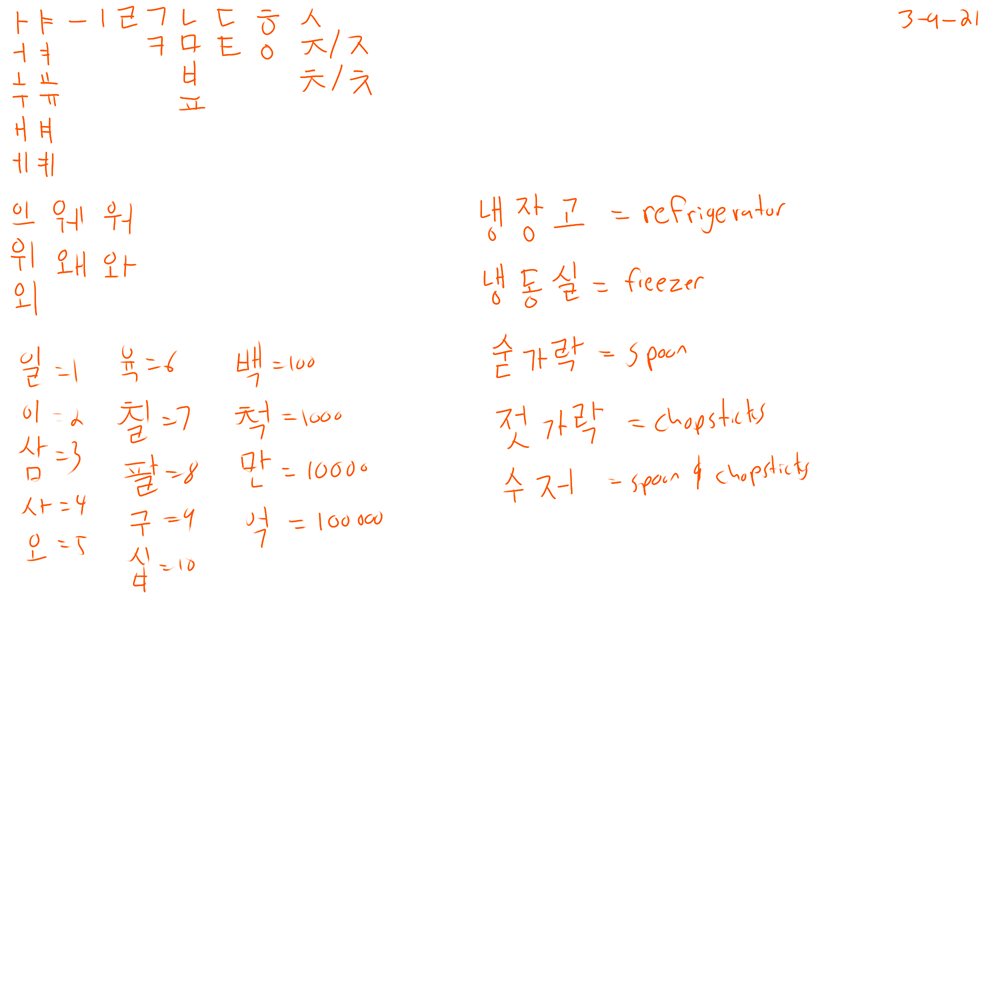 3-9-21
ㅏ ㅑ ㅡ ㅣ ㄹ ㄱ ㄴ ㄷ ㅎ ㅅ
ㅓ ㅕ ㅋ ㅁ ㅌ ㅇ ㅈ/ㅈ
ㅗ ㅛ ㅂ ㅊ/ㅊ
ㅜ ㅠ ㅍ
ㅐ ㅒ
ㅔ ㅖ
으 웨 워
위 왜 와
외
일 =1 육 =6 백 =100
이 =2 칠 =7 척 =1000
삼 =3 팔 =8 만 =10000
사 =4 구 =9 억 =100000
오 =5 십 =10
냉장고 = refrigerator
냉동실 = freezer
숟가락 = spoon
젓가락 = chopsticks
수저 = spoon & chopsticks